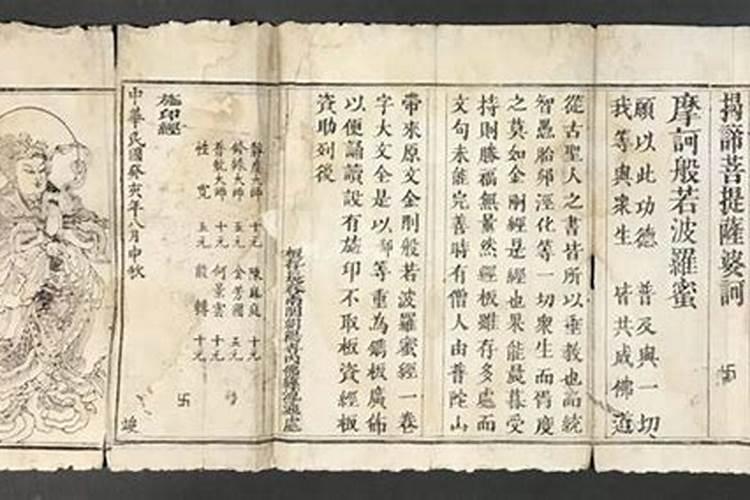 揭諦菩提薩婆訶
卍
摩訶般若波羅蜜
願以此功德 普及與一切
我等與衆生 皆共成佛道
從古聖人之書皆所以垂教也而統
智愚胎卵溼化等一切衆生而胥度
之莫如金剛經是經也果能晨暮受
持則勝福無量然經板雖存多處而
文句未能完善時有僧人由普陀山
帶來原文金剛般若波羅蜜經一卷
字大文全是以 等重為鐫板廣佈
以便誦讀設有施印不取板資經板
資助列後
大師 十元 陳 庭 十元
大師 五元 金芳 五元
大師 十元 何景雲 十元
性寬 五元 轉 十元
施印經
卍
中華民國癸亥年八月中秋
竣